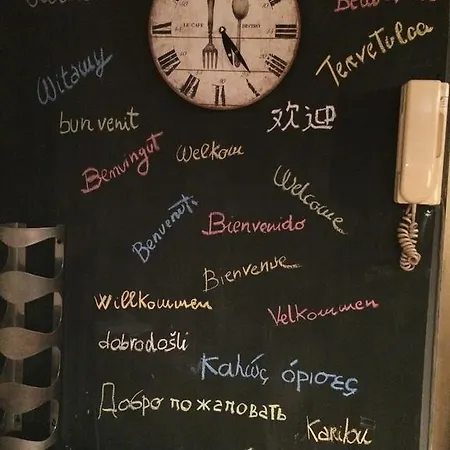 LE CAFE BISTRO
Tervetuloa
Witamy
bun venit
欢迎
Benvingut
Welkom
Welcome
Benvenuti
Bienvenido
Bienvenue
Willkommen
Velkommen
dobrodošli
Καλώς όρισες
Добро пожаловать
Karibu